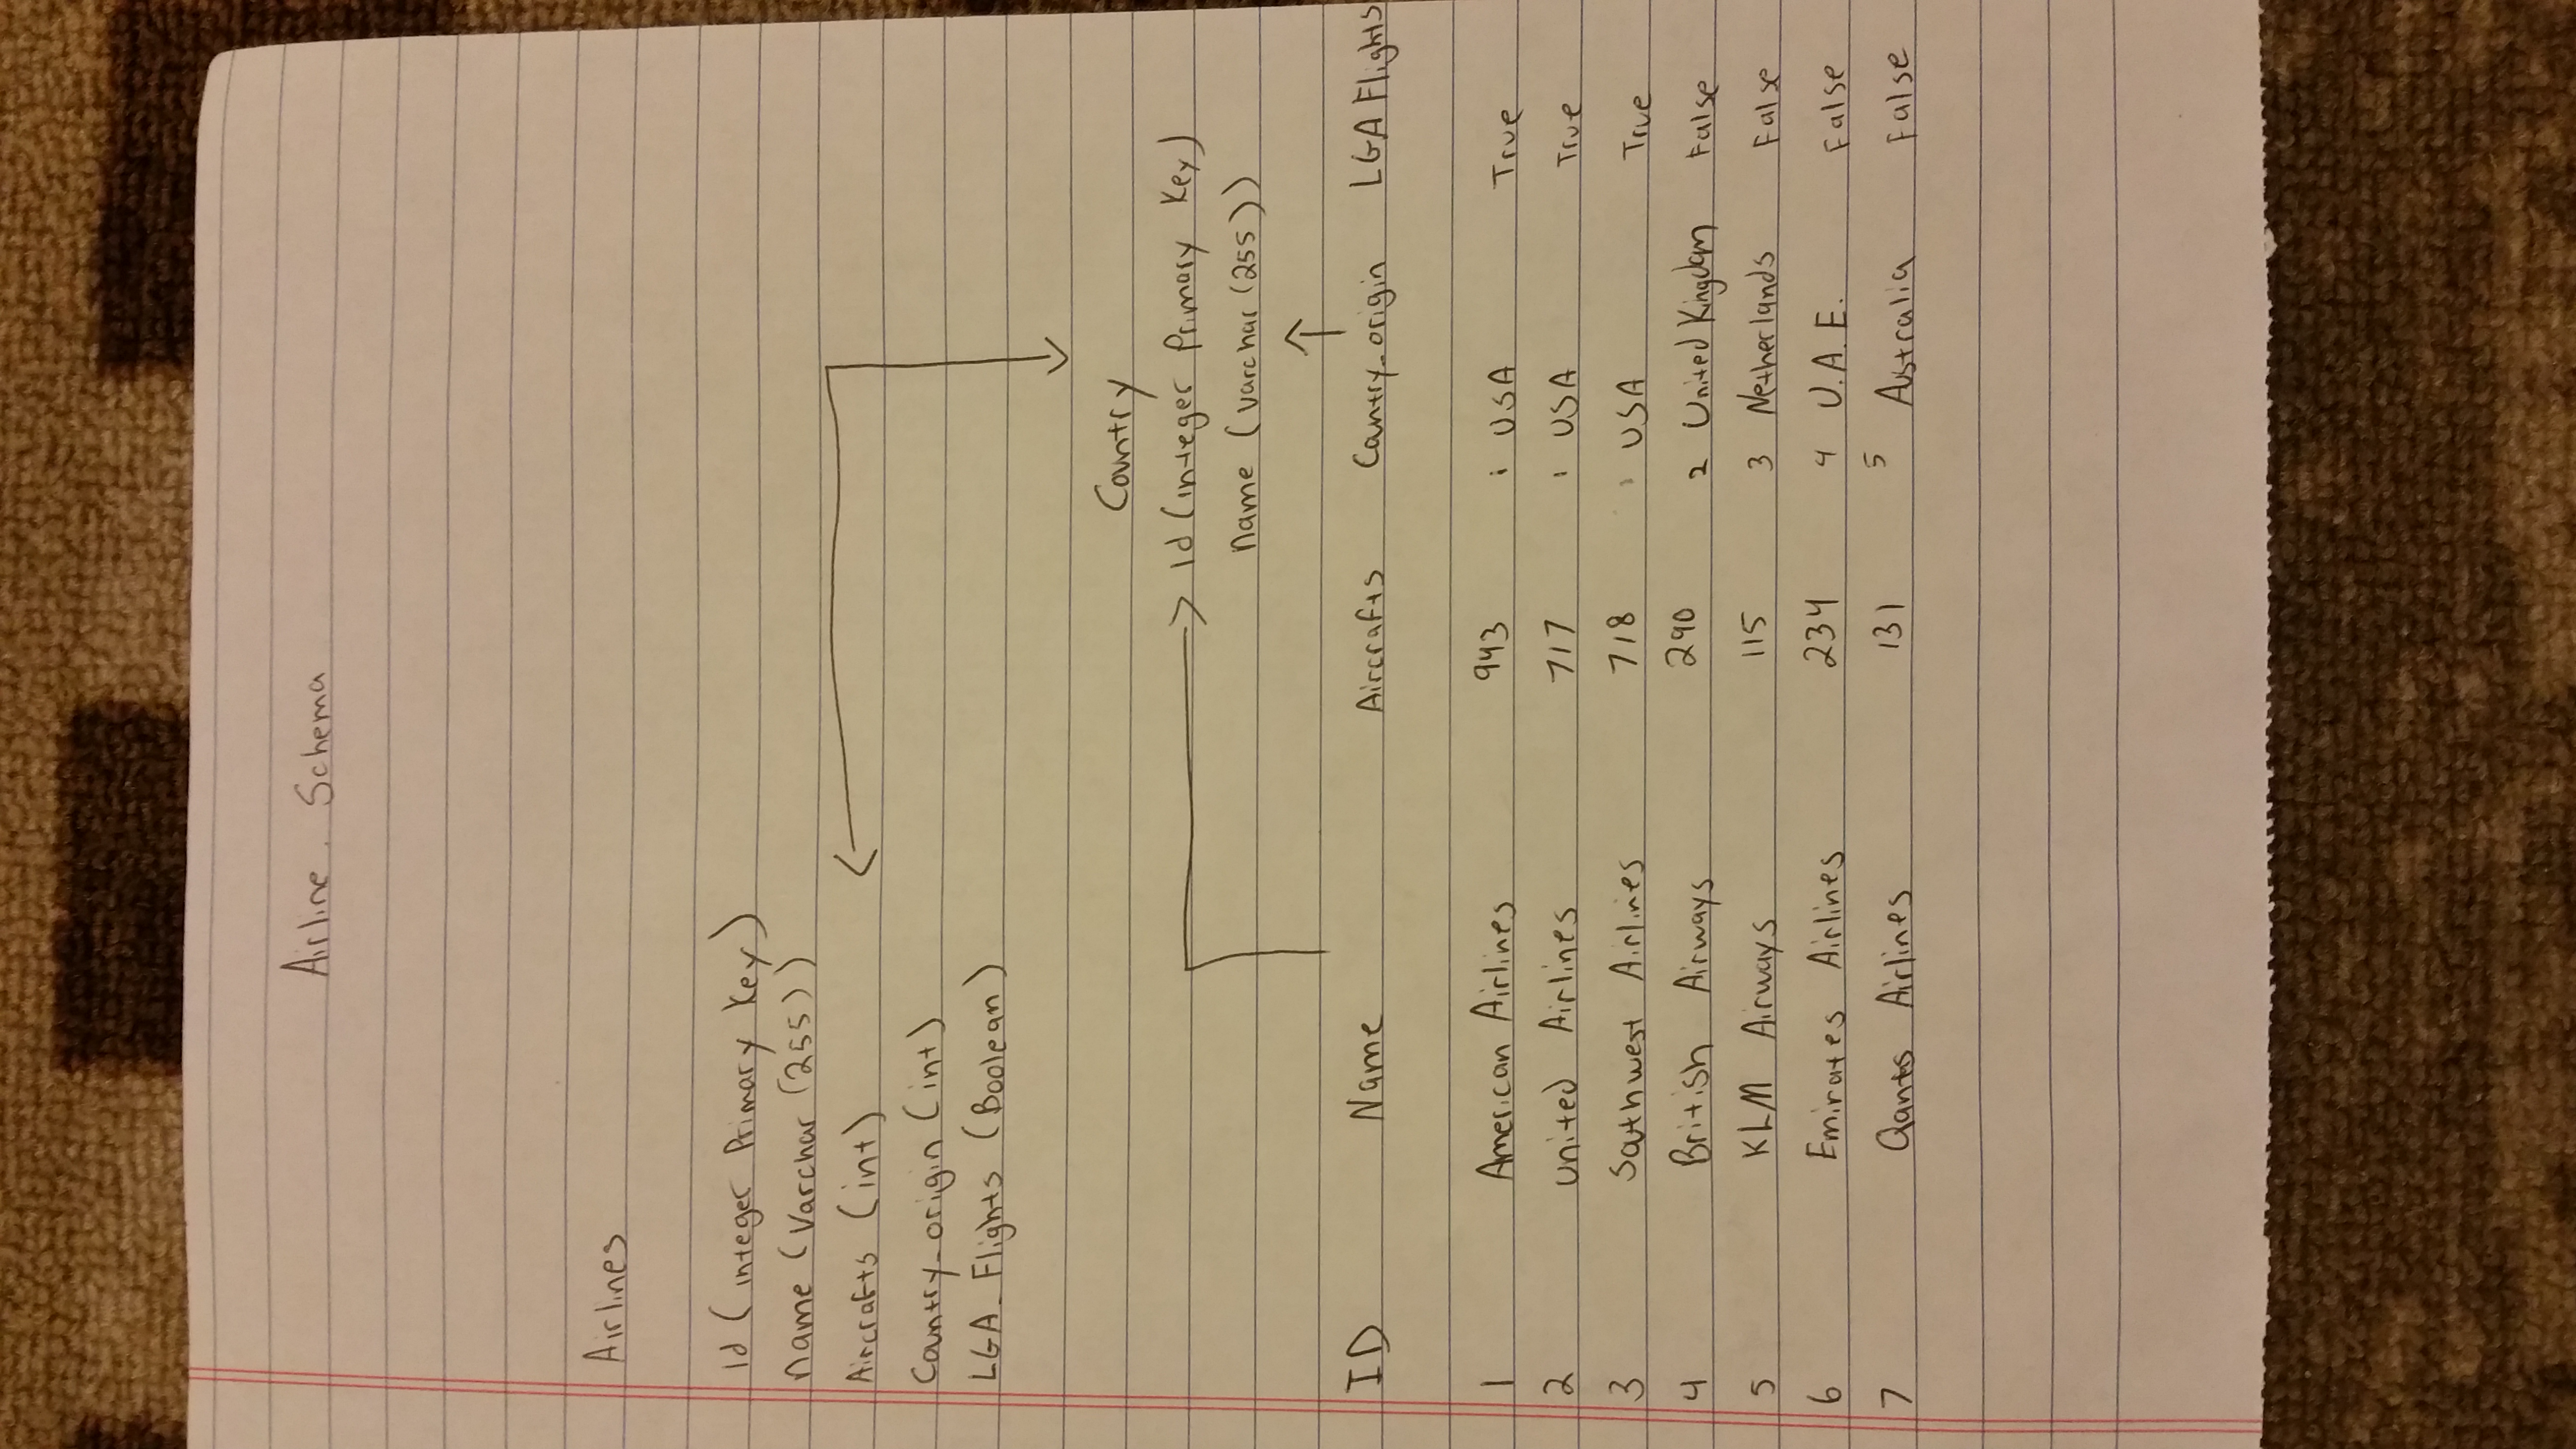 Airline Schema
Airlines
Id (integer Primary Key)
name (Varchar (255))
Aircrafts (int)
Country_origin (int)
LGA_Flights (Boolean)
Country
Id (integer Primary Key)
name (varchar (255))
ID Name Aircrafts Country_origin LGA Flights
1 American Airlines 943 1 USA True
2 United Airlines 717 1 USA True
3 Southwest Airlines 718 1 USA True
4 British Airways 290 2 United Kingdom False
5 KLM Airways 115 3 Netherlands False
6 Emirates Airlines 234 4 U.A.E. False
7 Qantas Airlines 131 5 Australia False